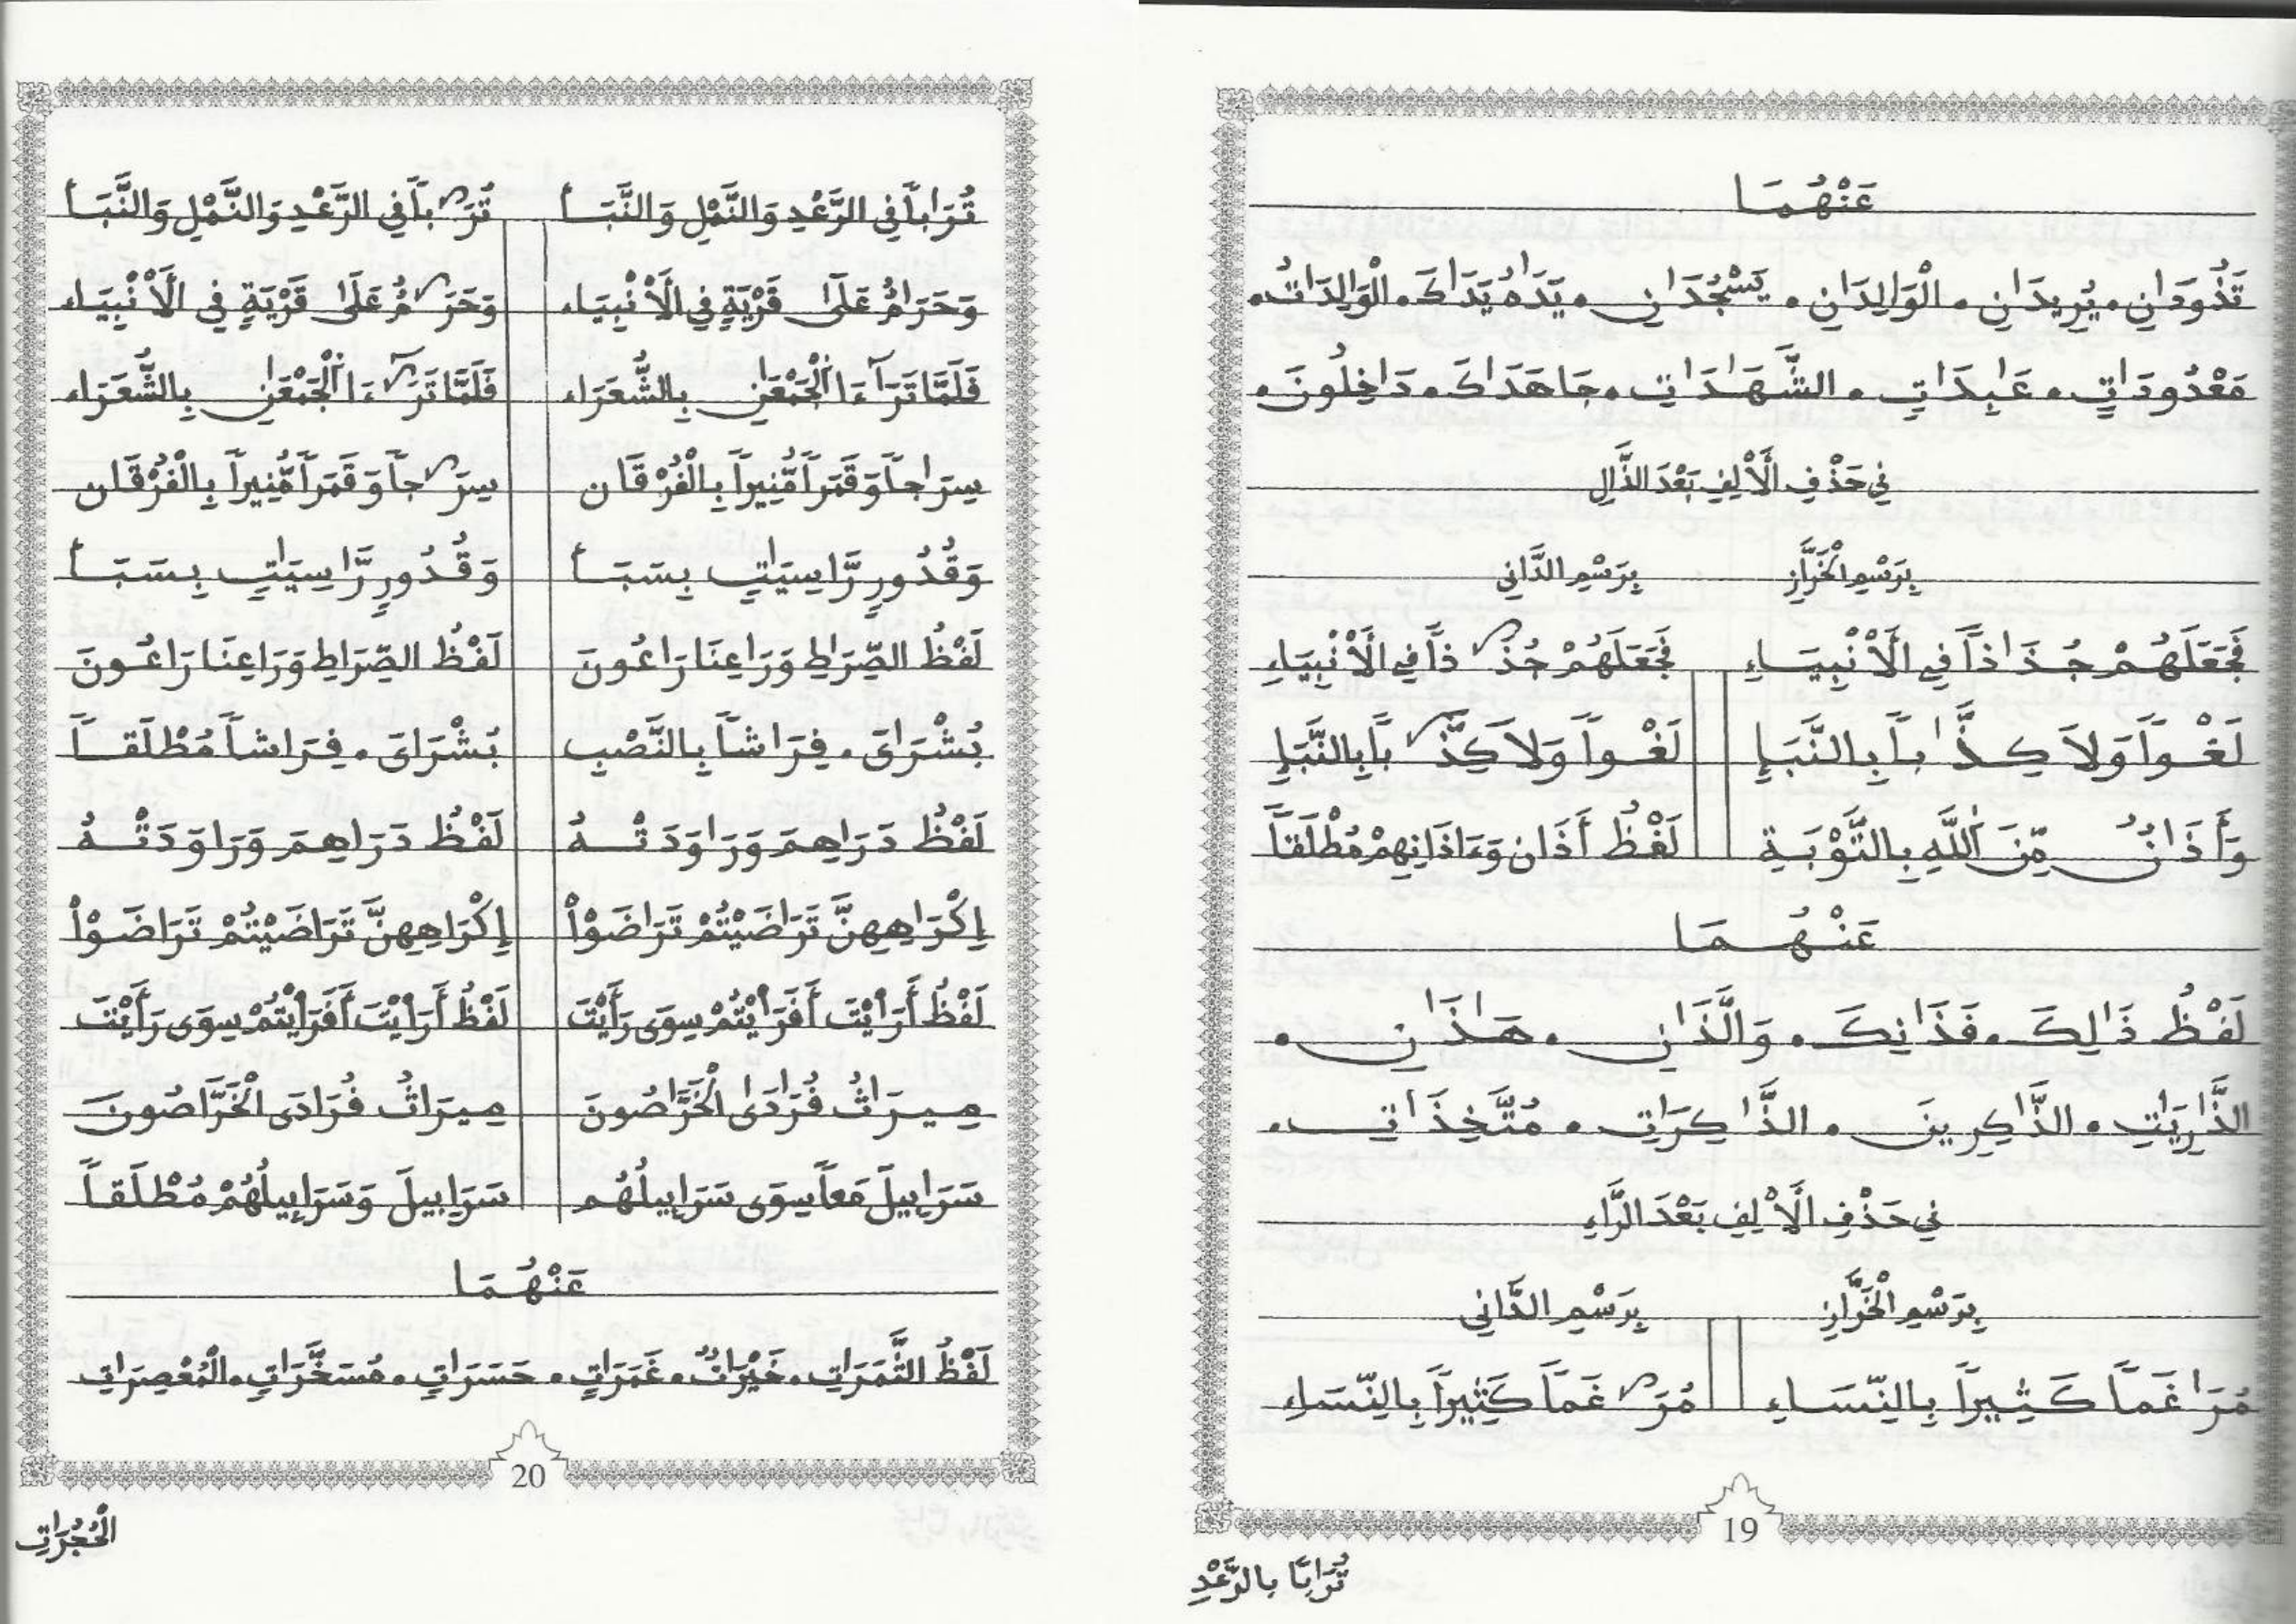 عَنْهُمَا
تَذُودَانِ . يُرِيدَانِ . الْوَالِدَانِ . يَسْجُدَانِ . يَدَاهُ يَدَاكَ . الْوَالِدَاتُ .
مَعْدُودَاتٍ . عَابِدَاتٍ . الشَّهَادَاتِ . جَاهَدَاكَ . دَاخِلُونَ .
فِي حَذْفِ الَالِفِ بَعْدَ الذَّالِ
بِرَسْمِ الْخَرَّازِ بِرَسْمِ الدَّانِي
فَجَعَلَهُمْ جُذَاذاً فِي الَانْبِيَاءِ فَجَعَلَهُمْ جُذَ ذاً فِي الَانْبِيَاءِ
لَغْواً وَلاَ كِذَّاباً بِالنَّبَإِ لَغْواً وَلاَ كِذَّ باً بِالنَّبَإِ
وَأَذَانٌ مِّنَ اَللَّهِ بِالتَّوْبَةِ لَفْظُ أَذَان وَءَاذَانِهِمْ مُطْلَقاً
عَنْهُمَا
لَفْظُ ذَالِكَ . فَذَانِكَ . وَالَّذَانِ . هَاذَانِ .
الذَّارِيَاتِ . الذَّاكِرِينَ . الذَّاكِرَاتِ . مُتَّخِذَاتِ .
فِي حَذْفِ الَالِفِ بَعْدَ الرَّاءِ
بِرَسْمِ الْخَرَّازِ بِرَسْمِ الدَّانِي
مُرَاغَماً كَثِيراً بِالنِّسَاءِ مُرَ غَماً كَثِيراً بِالنِّسَاءِ
19
تُرَابًا بِالرَّعْدِ
تُرَاباً فِي الرَّعْدِ وَالنَّمْلِ وَالنَّبَأ تُرَ باً فِي الرَّعْدِ وَالنَّمْلِ وَالنَّبَأ
وَحَرَامٌ عَلَىٰ قَرْيَةٍ فِي الَانْبِيَاء وَحَرَ مٌ عَلَىٰ قَرْيَةٍ فِي الَانْبِيَاء
فَلَمَّا تَرَآءَا اَلْجَمْعَانِ بِالشُّعَرَاء فَلَمَّا تَرَ ءَا اَلْجَمْعَانِ بِالشُّعَرَاء
سِرَاجاً وَقَمَراً مُّنِيراً بِالْفُرْقَان سِرَ جاً وَقَمَراً مُّنِيراً بِالْفُرْقَان
وَقُدُورٍ رَّاسِيَاتٍ بِسَبَأ وَقُدُورٍ رَّاسِيَاتٍ بِسَبَأ
لَفْظُ الصِّرَاطِ وَرَاعِنَا رَاعُونَ لَفْظُ الصِّرَاطِ وَرَاعِنَا رَاعُونَ
بُشْرَاىَ . فِرَاشاً بِالنَّصْبِ بُشْرَاىَ . فِرَاشاً مُطْلَقاً
لَفْظُ دَرَاهِمَ وَرَاوَدَتْهُ لَفْظُ دَرَاهِمَ وَرَاوَدَتْهُ
إِكْرَاهِهِنَّ تَرَاضَيْتُمْ تَرَاضَوْاْ إِكْرَاهِهِنَّ تَرَاضَيْتُمْ تَرَاضَوْاْ
لَفْظُ أَرَايْتَ أَفَرَايْتُمْ سِوَى رَأَيْتَ لَفْظُ أَرَايْتَ أَفَرَايْتُمْ سِوَى رَأَيْتَ
مِيرَاثُ فُرَادَىٰ الْخَرَّاصُونَ مِيرَاثُ فُرَادَى الْخَرَّاصُونَ
سَرَابِيلَ مَعاً سِوَى سَرَابِيلُهُم سَرَابِيلَ وَسَرَابِيلُهُمْ مُطْلَقاً
عَنْهُمَا
لَفْظُ الثَّمَرَاتِ . خَيْرَاتٌ . غَمَرَاتِ . حَسَرَاتٍ . مُسَخَّرَاتٍ . الْمُعْصِرَاتِ
20
الْحُجُرَاتِ